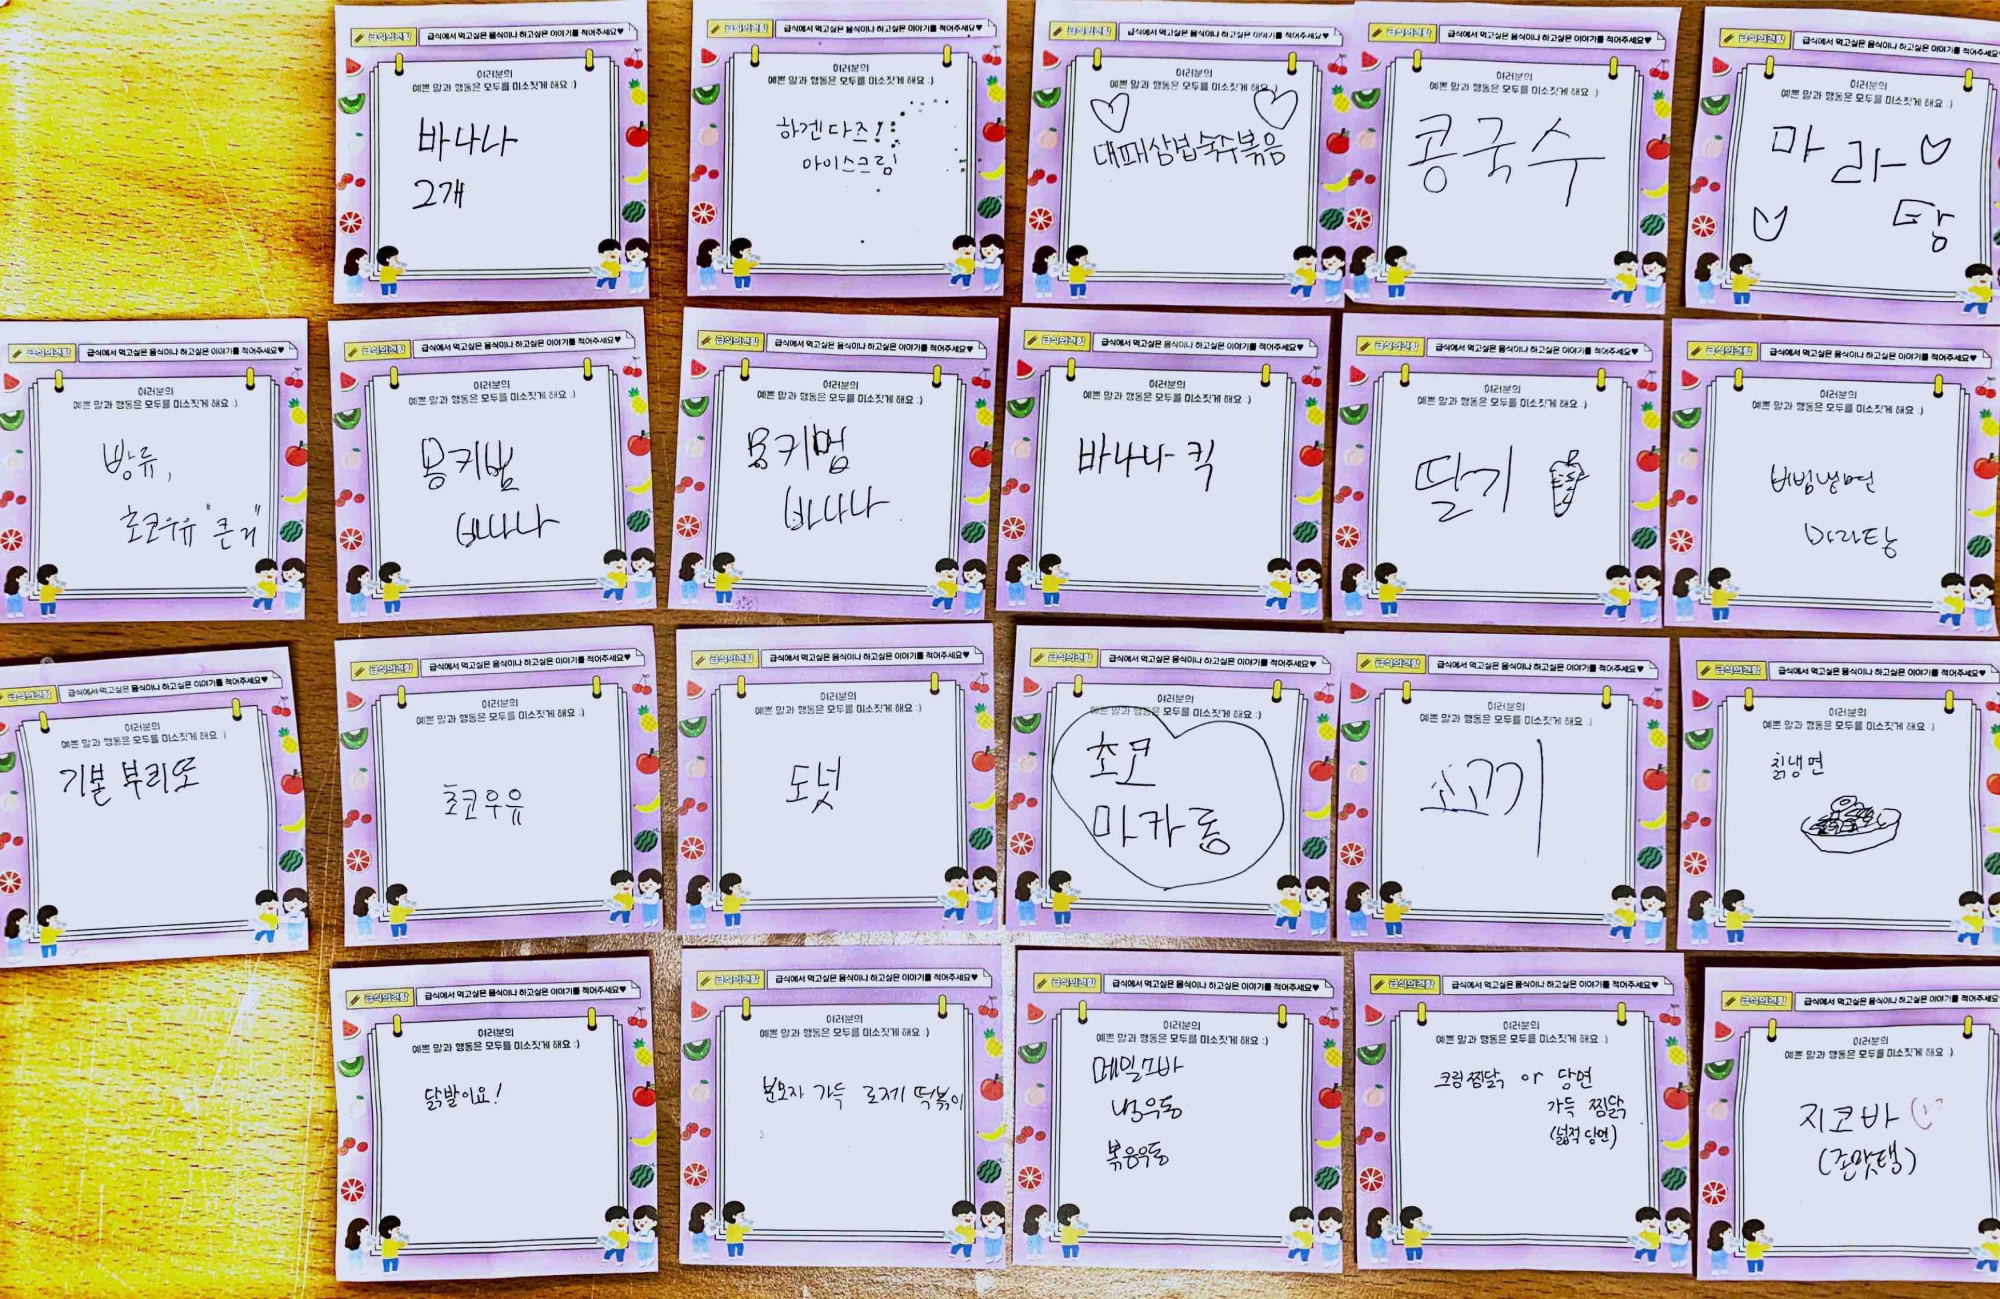 급식의견함 급식에서 먹고싶은 음식이나 하고싶은 이야기를 적어주세요♥
여러분의
예쁜 말과 행동은 모두를 미소짓게 해요 :)
바나나
2개
급식의견함 급식에서 먹고싶은 음식이나 하고싶은 이야기를 적어주세요♥
여러분의
예쁜 말과 행동은 모두를 미소짓게 해요 :)
하겐다즈!
아이스크림
급식의견함 급식에서 먹고싶은 음식이나 하고싶은 이야기를 적어주세요♥
여러분의
예쁜 말과 행동은 모두를 미소짓게 해요 :)
대패삼겹숙주볶음
급식의견함 급식에서 먹고싶은 음식이나 하고싶은 이야기를 적어주세요♥
여러분의
예쁜 말과 행동은 모두를 미소짓게 해요 :)
콩국수
급식의견함 급식에서 먹고싶은 음식이나 하고싶은 이야기를 적어주세요
여러분의
예쁜 말과 행동은 모두를 미소짓게 해요 :)
마라
탕
급식의견함 급식에서 먹고싶은 음식이나 하고싶은 이야기를 적어주세요♥
여러분의
예쁜 말과 행동은 모두를 미소짓게 해요 :)
방류,
초코우유 "큰거"
급식의견함 급식에서 먹고싶은 음식이나 하고싶은 이야기를 적어주세요♥
여러분의
예쁜 말과 행동은 모두를 미소짓게 해요 :)
몽키범
바나나
급식의견함 급식에서 먹고싶은 음식이나 하고싶은 이야기를 적어주세요♥
여러분의
예쁜 말과 행동은 모두를 미소짓게 해요 :)
몽키범
바나나
급식의견함 급식에서 먹고싶은 음식이나 하고싶은 이야기를 적어주세요♥
여러분의
예쁜 말과 행동은 모두를 미소짓게 해요 :)
바나나킥
급식의견함 급식에서 먹고싶은 음식이나 하고싶은 이야기를 적어주세요♥
여러분의
예쁜 말과 행동은 모두를 미소짓게 해요 :)
딸기
급식의견함 급식에서 먹고싶은 음식이나 하고싶은 이야기를 적어주세요♥
여러분의
예쁜 말과 행동은 모두를 미소짓게 해요 :)
비빔냉면
마라탕
급식의견함 급식에서 먹고싶은 음식이나 하고싶은 이야기를 적어주세요♥
여러분의
예쁜 말과 행동은 모두를 미소짓게 해요 :)
기본 부리또
급식의견함 급식에서 먹고싶은 음식이나 하고싶은 이야기를 적어주세요♥
여러분의
예쁜 말과 행동은 모두를 미소짓게 해요 :)
초코우유
급식의견함 급식에서 먹고싶은 음식이나 하고싶은 이야기를 적어주세요♥
여러분의
예쁜 말과 행동은 모두를 미소짓게 해요 :)
도넛
급식의견함 급식에서 먹고싶은 음식이나 하고싶은 이야기를 적어주세요♥
여러분의
예쁜 말과 행동은 모두를 미소짓게 해요 :)
초코
마카롱
급식의견함 급식에서 먹고싶은 음식이나 하고싶은 이야기를 적어주세요♥
여러분의
예쁜 말과 행동은 모두를 미소짓게 해요 :)
소고기
급식의견함 급식에서 먹고싶은 음식이나 하고싶은 이야기를 적어주세요♥
여러분의
예쁜 말과 행동은 모두를 미소짓게 해요 :)
칡냉면
급식의견함 급식에서 먹고싶은 음식이나 하고싶은 이야기를 적어주세요♥
여러분의
예쁜 말과 행동은 모두를 미소짓게 해요 :)
닭발이요!
급식의견함 급식에서 먹고싶은 음식이나 하고싶은 이야기를 적어주세요♥
여러분의
예쁜 말과 행동은 모두를 미소짓게 해요 :)
분모자 가득 로제 떡볶이
급식의견함 급식에서 먹고싶은 음식이나 하고싶은 이야기를 적어주세요♥
여러분의
예쁜 말과 행동은 모두를 미소짓게 해요 :)
메밀소바
냉우동
볶음우동
급식의견함 급식에서 먹고싶은 음식이나 하고싶은 이야기를 적어주세요♥
여러분의
예쁜 말과 행동은 모두를 미소짓게 해요 :)
크림찜닭 or 당면
가득 찜닭
(넓적 당면)
급식의견함 급식에서 먹고싶은 음식이나 하고싶은 이야기를 적어주세요♥
여러분의
예쁜 말과 행동은 모두를 미소짓게 해요 :)
지코바
(존맛탱)